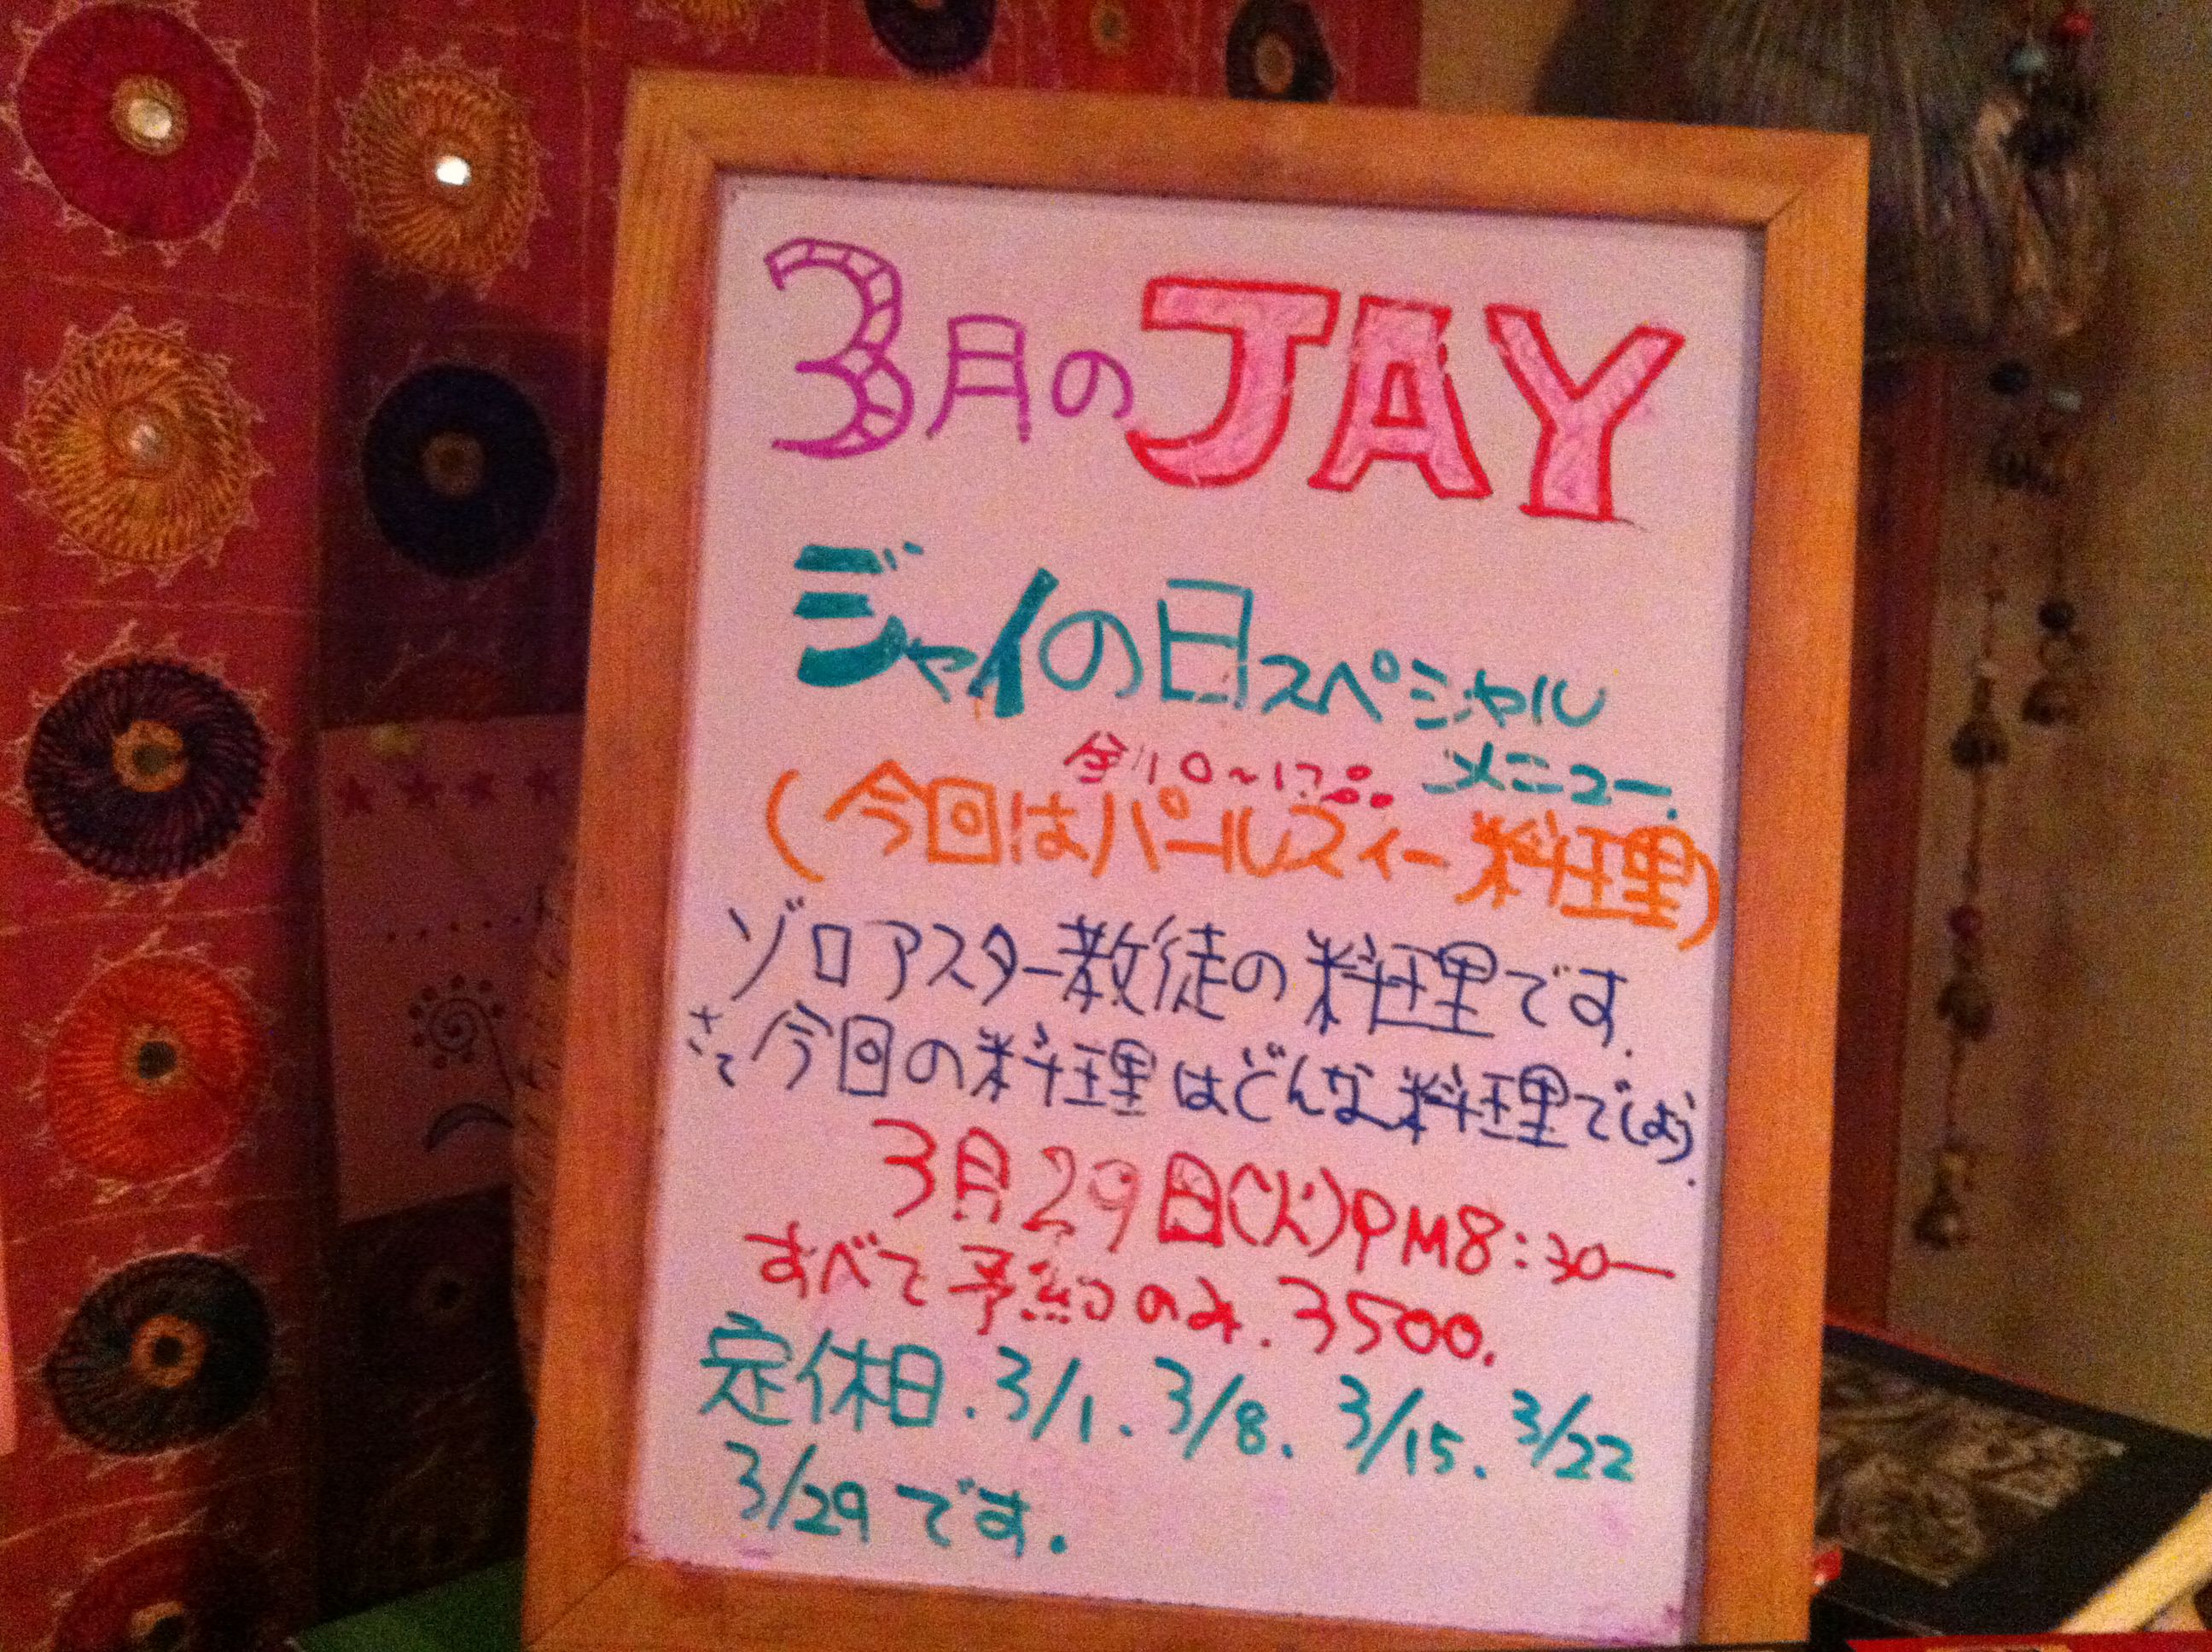 3月のJAY
ジャイの日スペシャル
メニュー.
(今回はパールスィー料理)
ゾロアスター教徒の料理です.
さて今回の料理はどんな料理でしょう.
3月29日(火)PM8:30ー
すべて予約のみ.3500.
定休日.3/1.3/8.3/15.3/22
3/29です.